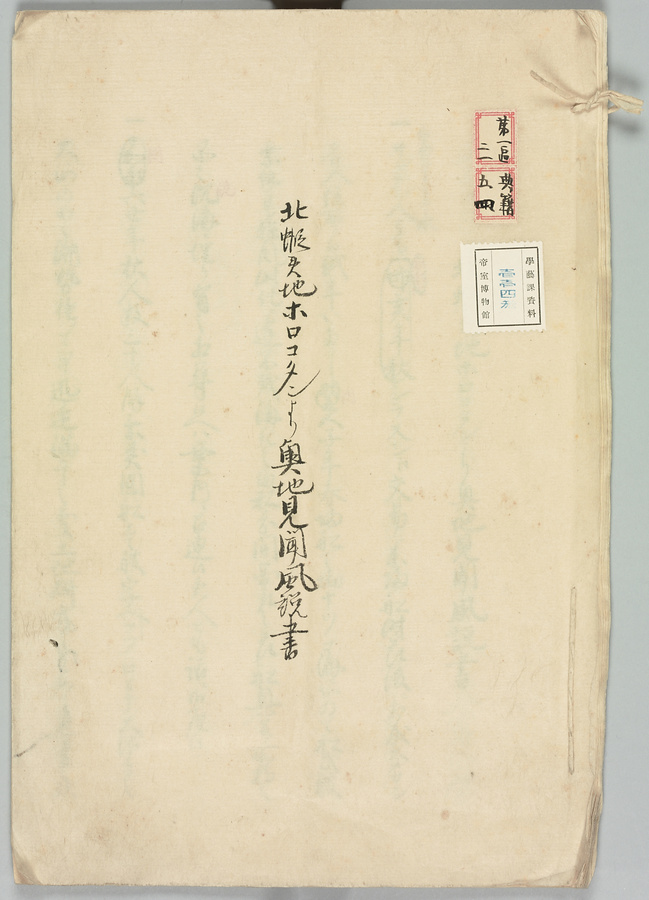 第一追
二一
典籍
五四
學藝課資料
壹壹四方
帝室博物館
北蝦夷地ホロコタンより奥地見聞風説書